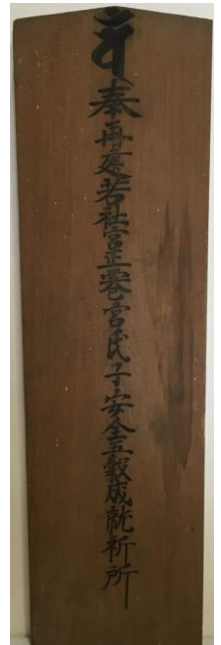 奉再建若社宮正宮氏子安全五穀成就祈所